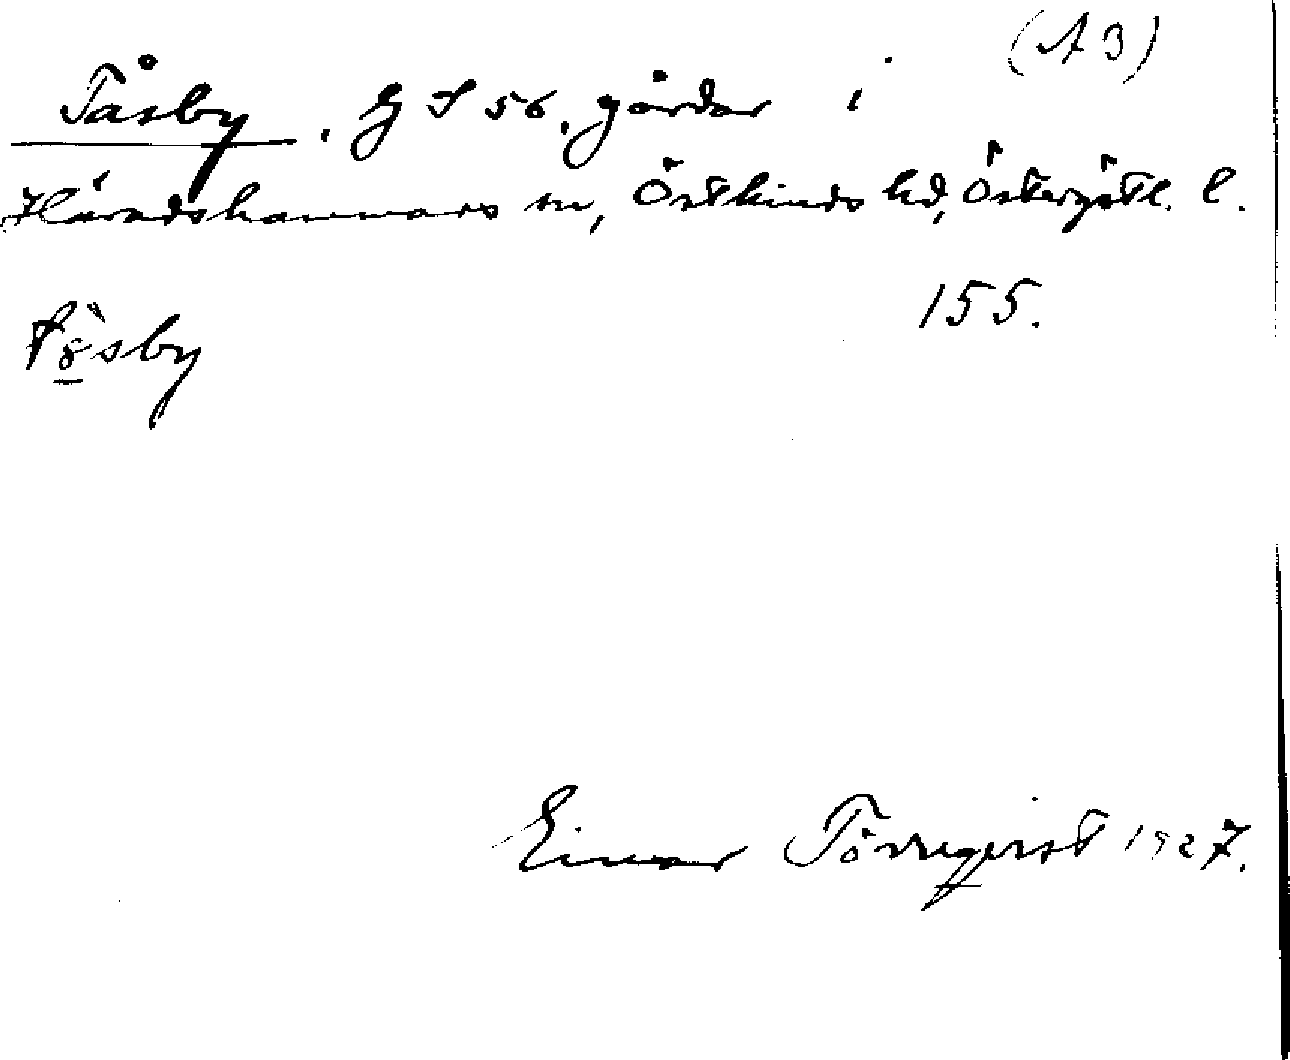 (A3)
Tåsby. G S 56, gårdar i
Häradshammars sn, Östkinds hd, Östergötl. l.
155.
tò̱sby
Einar Törnqvist 1927.